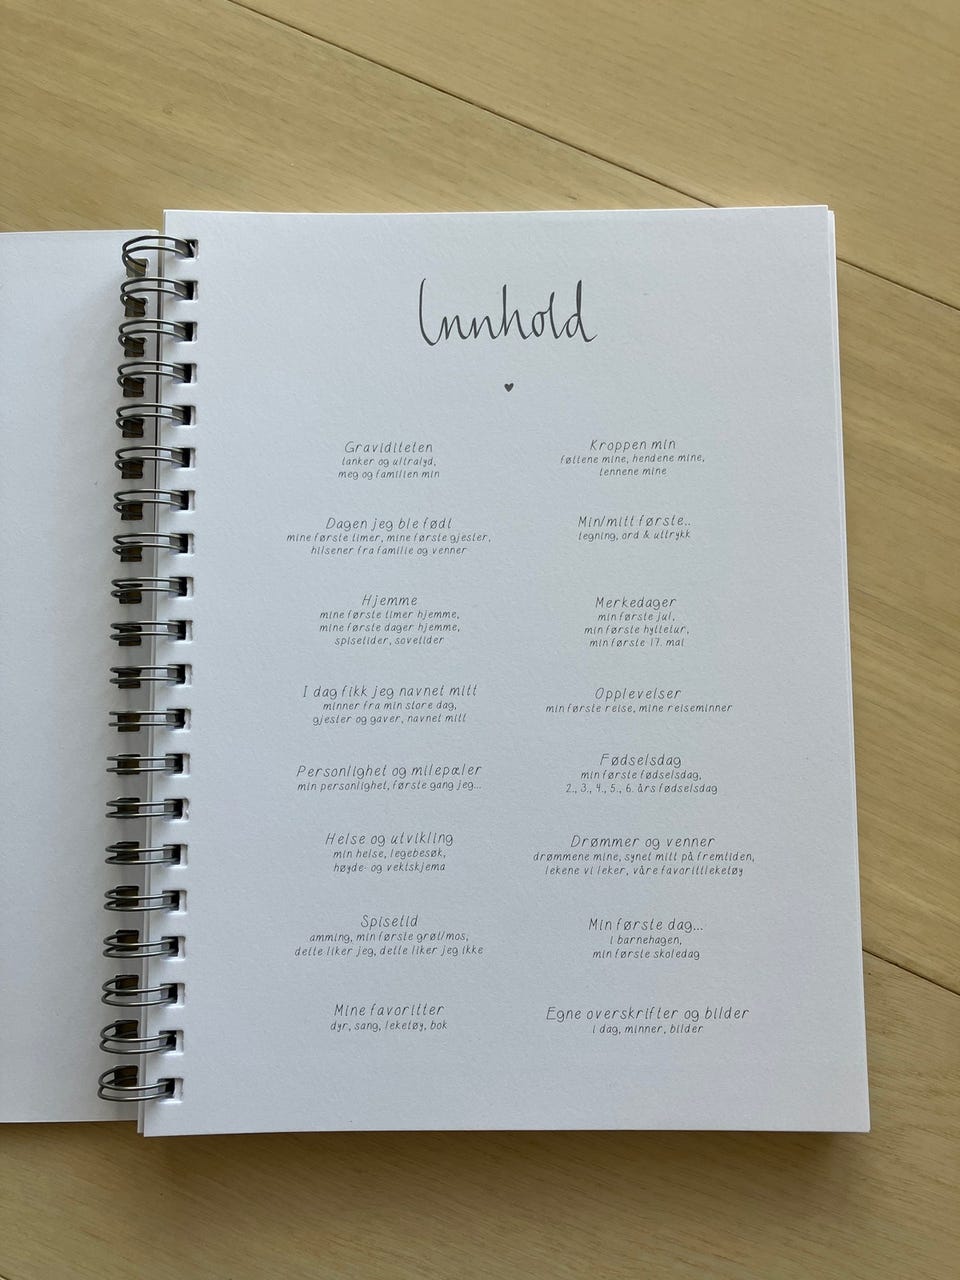 Innhold
Graviditeten
tanker og ultralyd,
meg og familien min
Dagen jeg ble født
mine første timer, mine første gjester,
hilsener fra familie og venner
Hjemme
mine første timer hjemme,
mine første dager hjemme,
spisetider, sovetider
I dag fikk jeg navnet mitt
minner fra min store dag,
gjester og gaver, navnet mitt
Personlighet og milepæler
min personlighet, første gang jeg...
Helse og utvikling
min helse, legebesøk,
høyde- og vektskjema
Spisetid
amming, min første grøt/mos,
dette liker jeg, dette liker jeg ikke
Mine favoritter
dyr, sang, leketøy, bok
Kroppen min
føttene mine, hendene mine,
tennene mine
Min/mitt første..
tegning, ord & uttrykk
Merkedager
min første jul,
min første hyttetur,
min første 17. mai
Opplevelser
min første reise, mine reiseminner
Fødselsdag
min første fødselsdag,
2., 3., 4., 5., 6. års fødselsdag
Drømmer og venner
drømmene mine, synet mitt på fremtiden,
lekene vi leker, våre favorittleketøy
Min første dag...
i barnehagen,
min første skoledag
Egne overskrifter og bilder
i dag, minner, bilder